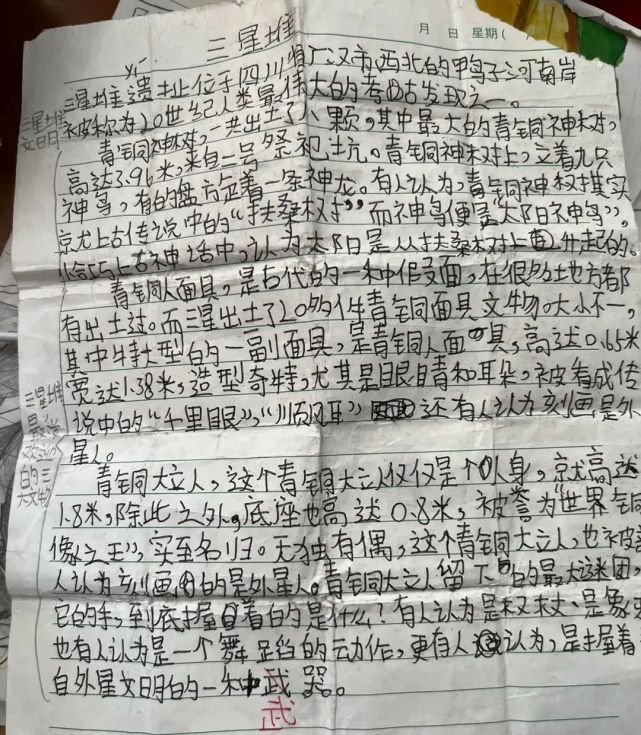 三星堆
月 日 星期(
yi
三星堆遗址位于四川省广汉市西北的鸭子河南岸
被称为20世纪人类最伟大的考古发现之一。
三星堆
文明
青铜神树,一共出土了八颗。其中最大的青铜神树,
高达3.96米,来自二号祭祀坑。青铜神树上,立着九只
神鸟,有的盘旁定着一条神龙。有人认为,青铜神树其实
京尤上古传说中的“扶桑树”而神鸟便是“太阳神鸟”,
上古神话中,认为太阳是从扶桑树上升起的。
青铜人面具,是古代的一种假面,在很多地方都
有出土过。而三星出土了20多件青铜面具文物。大小不一,
其中特大型的一副面具,是青铜人面具,高达0.65米
宽达1.38米,造型奇特,尤其是眼睛和耳朵,被看成传
说中的“千里眼”,“顺风耳”还有人认为刻画是外
星人。
三星堆
的三
大文物
青铜大立人,这个青铜大立人仅仅是个人身,京尤高达
1.8米,除此之外,底座也高达0.8米,被誉为“世界铜
像之王”,实至名归。无独有偶,这个青铜大立人,也被
人认为刻画的是外星人。青铜大立人留下的最大谜团,
它的手,到底握着的是什么?有人认为是权杖、是象
也有人认为是一个舞蹈的云力作,更有人认为,是握着
自外星文明的一种武器。
武